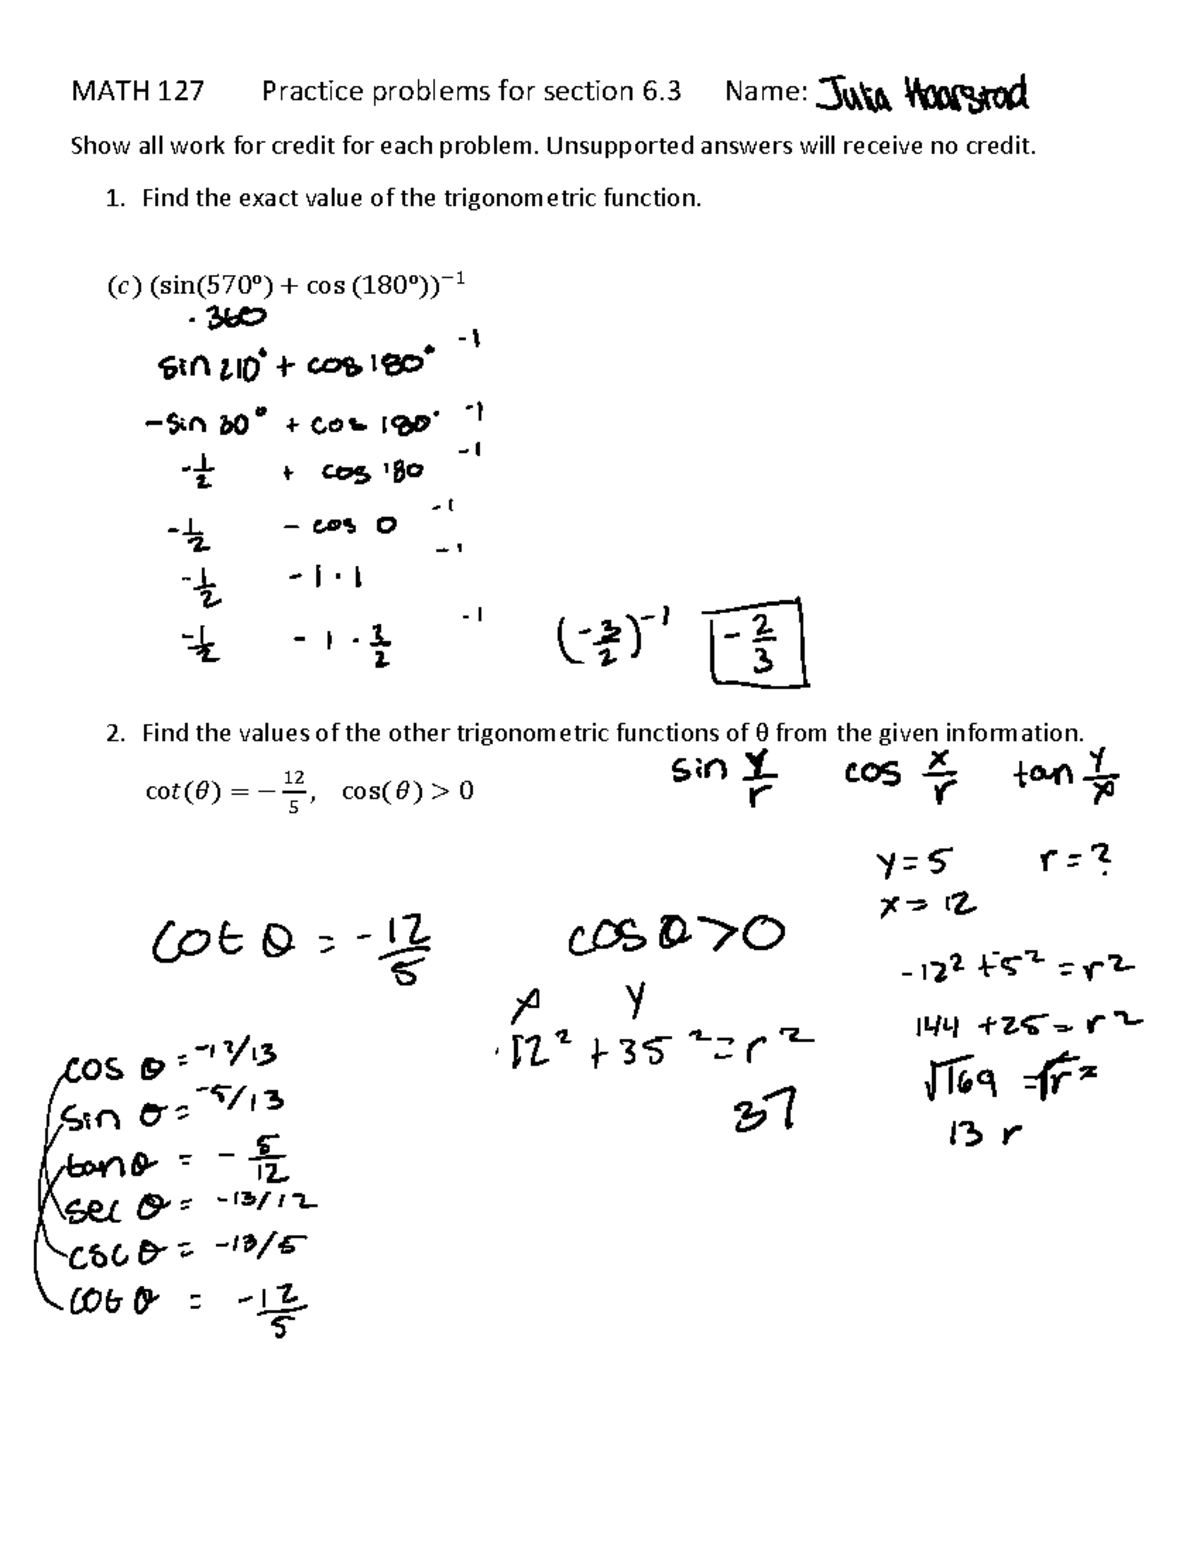 MATH 127 Practice problems for section 6.3 Name: Julia Haarstad
Show all work for credit for each problem. Unsupported answers will receive no credit.
1. Find the exact value of the trigonometric function.
(c) (sin(570º) + cos (180º))⁻¹
- 360
sin 210° + cos 180° ⁻¹
-sin 30° + cos 180° ⁻¹
-1/2 + cos 180 ⁻¹
-1/2 - cos 0 ⁻¹
-1/2 - 1 · 1 ⁻¹
-1/2 - 1 · 2/2 ⁻¹ (-3/2)⁻¹ -2/3
2. Find the values of the other trigonometric functions of θ from the given information.
sin y/r cos x/r tan y/x
cot(θ) = −12/5, cos(θ) > 0
y = 5 r = ?
x = 12
cot θ = -12/5 cos θ > 0
-12² + 5² = r²
x y
144 + 25 = r²
12² + 35² = r²
√169 = √r²
37
13 r
cos θ = -12/13
sin θ = -5/13
tan θ = -5/12
sec θ = -13/12
csc θ = -13/5
cot θ = -12/5